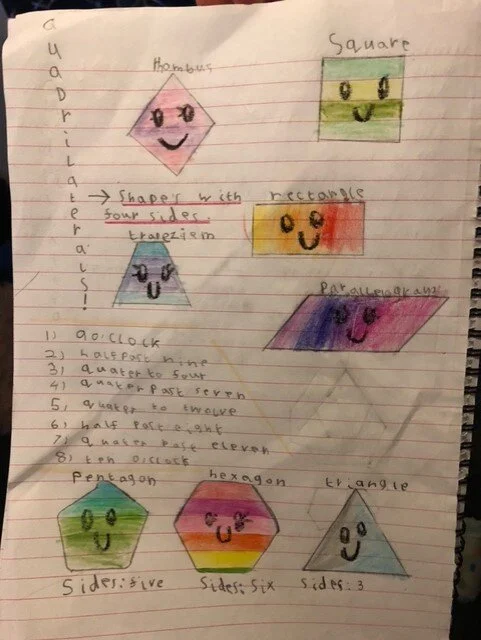 QuaDrilaterals!
Rhombus
Square
→ Shapes with
four sides.
rectangle
trapezism
Parallelogram
1) 9 o:clock
2) half past nine
3) quater to four
4) quater past seven
5) quater to twelve
6) half past eight
7) quater past eleven
8) ten o:clock
Pentagon
hexagon
triangle
Sides: five
Sides: Six
Sides: 3